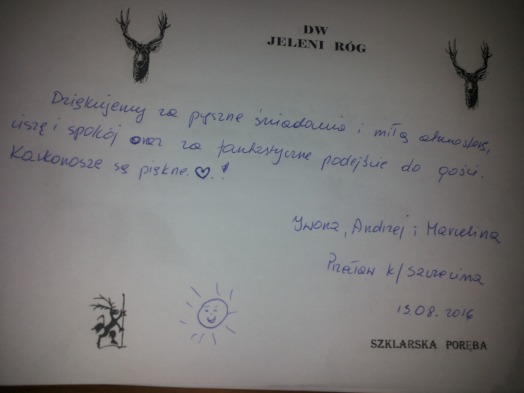 DW
JELENI RÓG
Dziękujemy za pyszne śniadania i miłą atmosferę,
ciszę i spokój oraz za fantastyczne podejście do gości.
Karkonosze są piękne.♡.!
Iwona, Andrzej i Marcelina
Przecław k/Szczecina
15.08.2016
SZKLARSKA PORĘBA